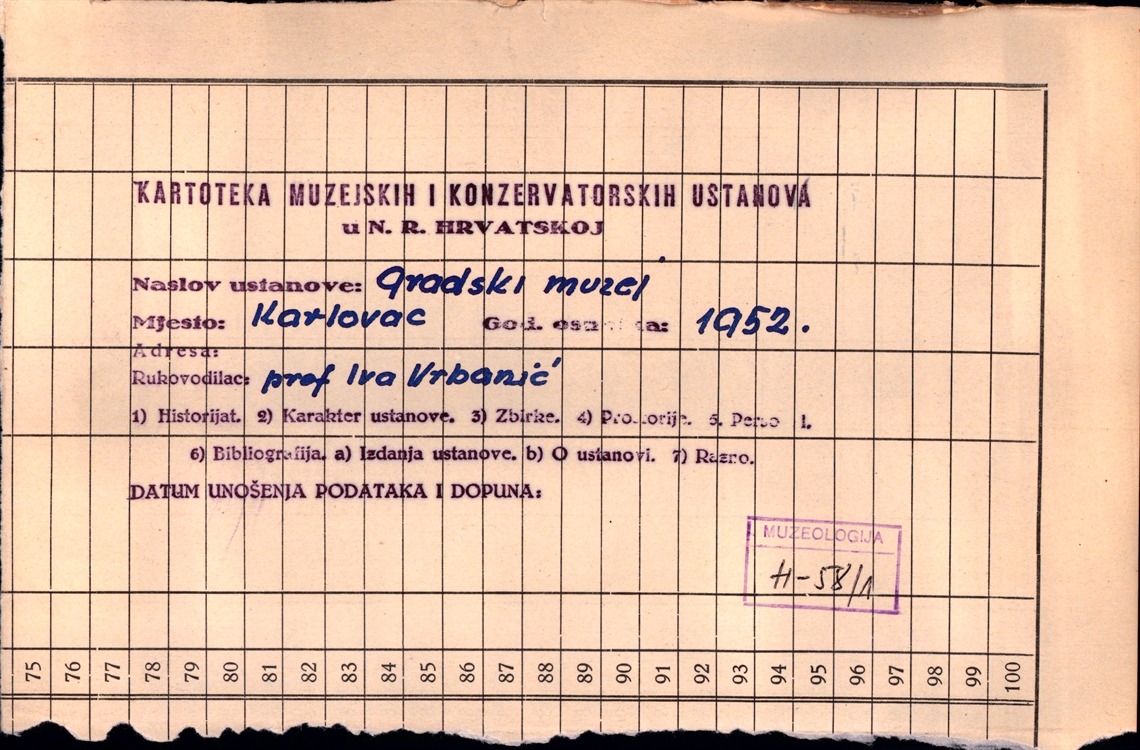 KARTOTEKA MUZEJSKIH I KONZERVATORSKIH USTANOVA
u N. R. HRVATSKOJ
Naslov ustanove: Gradski muzej
Mjesto: Karlovac God. 1952.
Adresa:
Rukovodilac: prof Iva Vrbanić
1) Historijat. 2) Karakter ustanove. 3) Zbirke. 4) 5.
6) Bibliografija. a) Izdanja ustanove. b) O ustanovi. 7) Razno.
DATUM UNOŠENJA PODATAKA I DOPUNA:
MUZEOLOGIJA
H-58/1
75 76 77 78 79 80 81 82 83 84 85 86 87 88 89 90 91 92 93 94 95 96 97 98 99 100